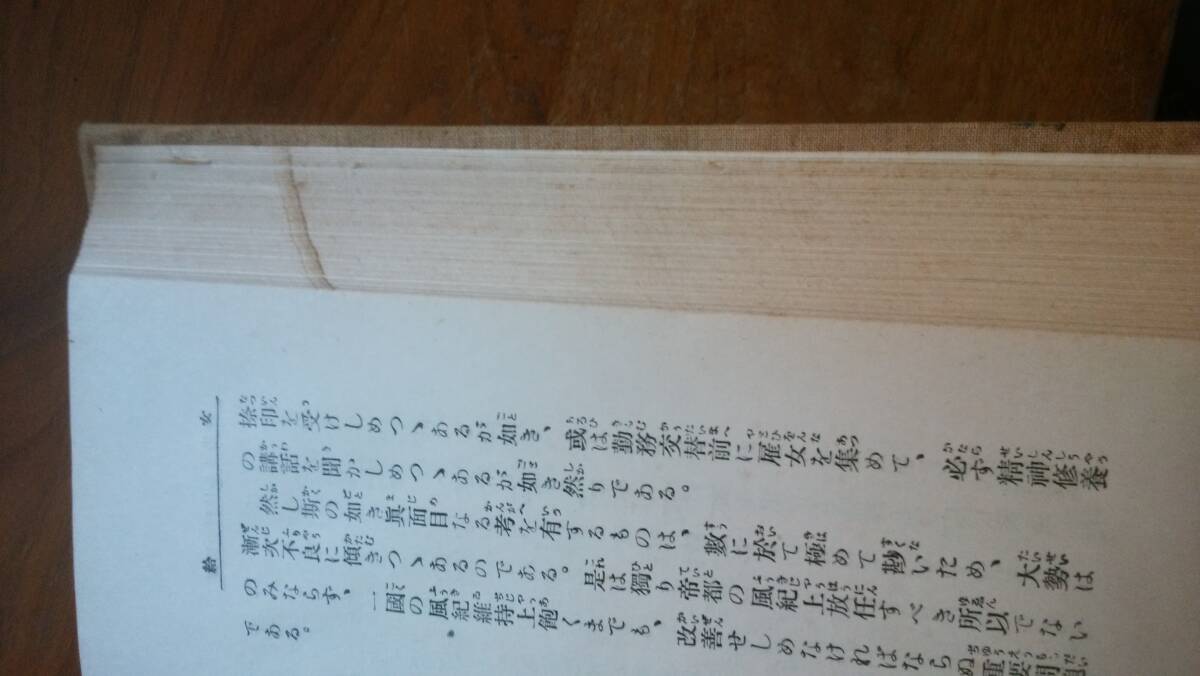 女給
捺印を受けしめつゝあるが如き、或は勤務交替前に雇女を集めて、必ず精神修養
の講話を聞かしめつゝあるが如き然りである。
然し斯の如き眞面目なる考を有するものは、數に於て極めて尠いため、大勢は
漸次不良に傾きつゝあるのである。是は獨り帝都の風紀上放任すべき所以でない
のみならず、一國の風紀維持上飽くまでも、改善せしめなければならぬ重要問題
である。